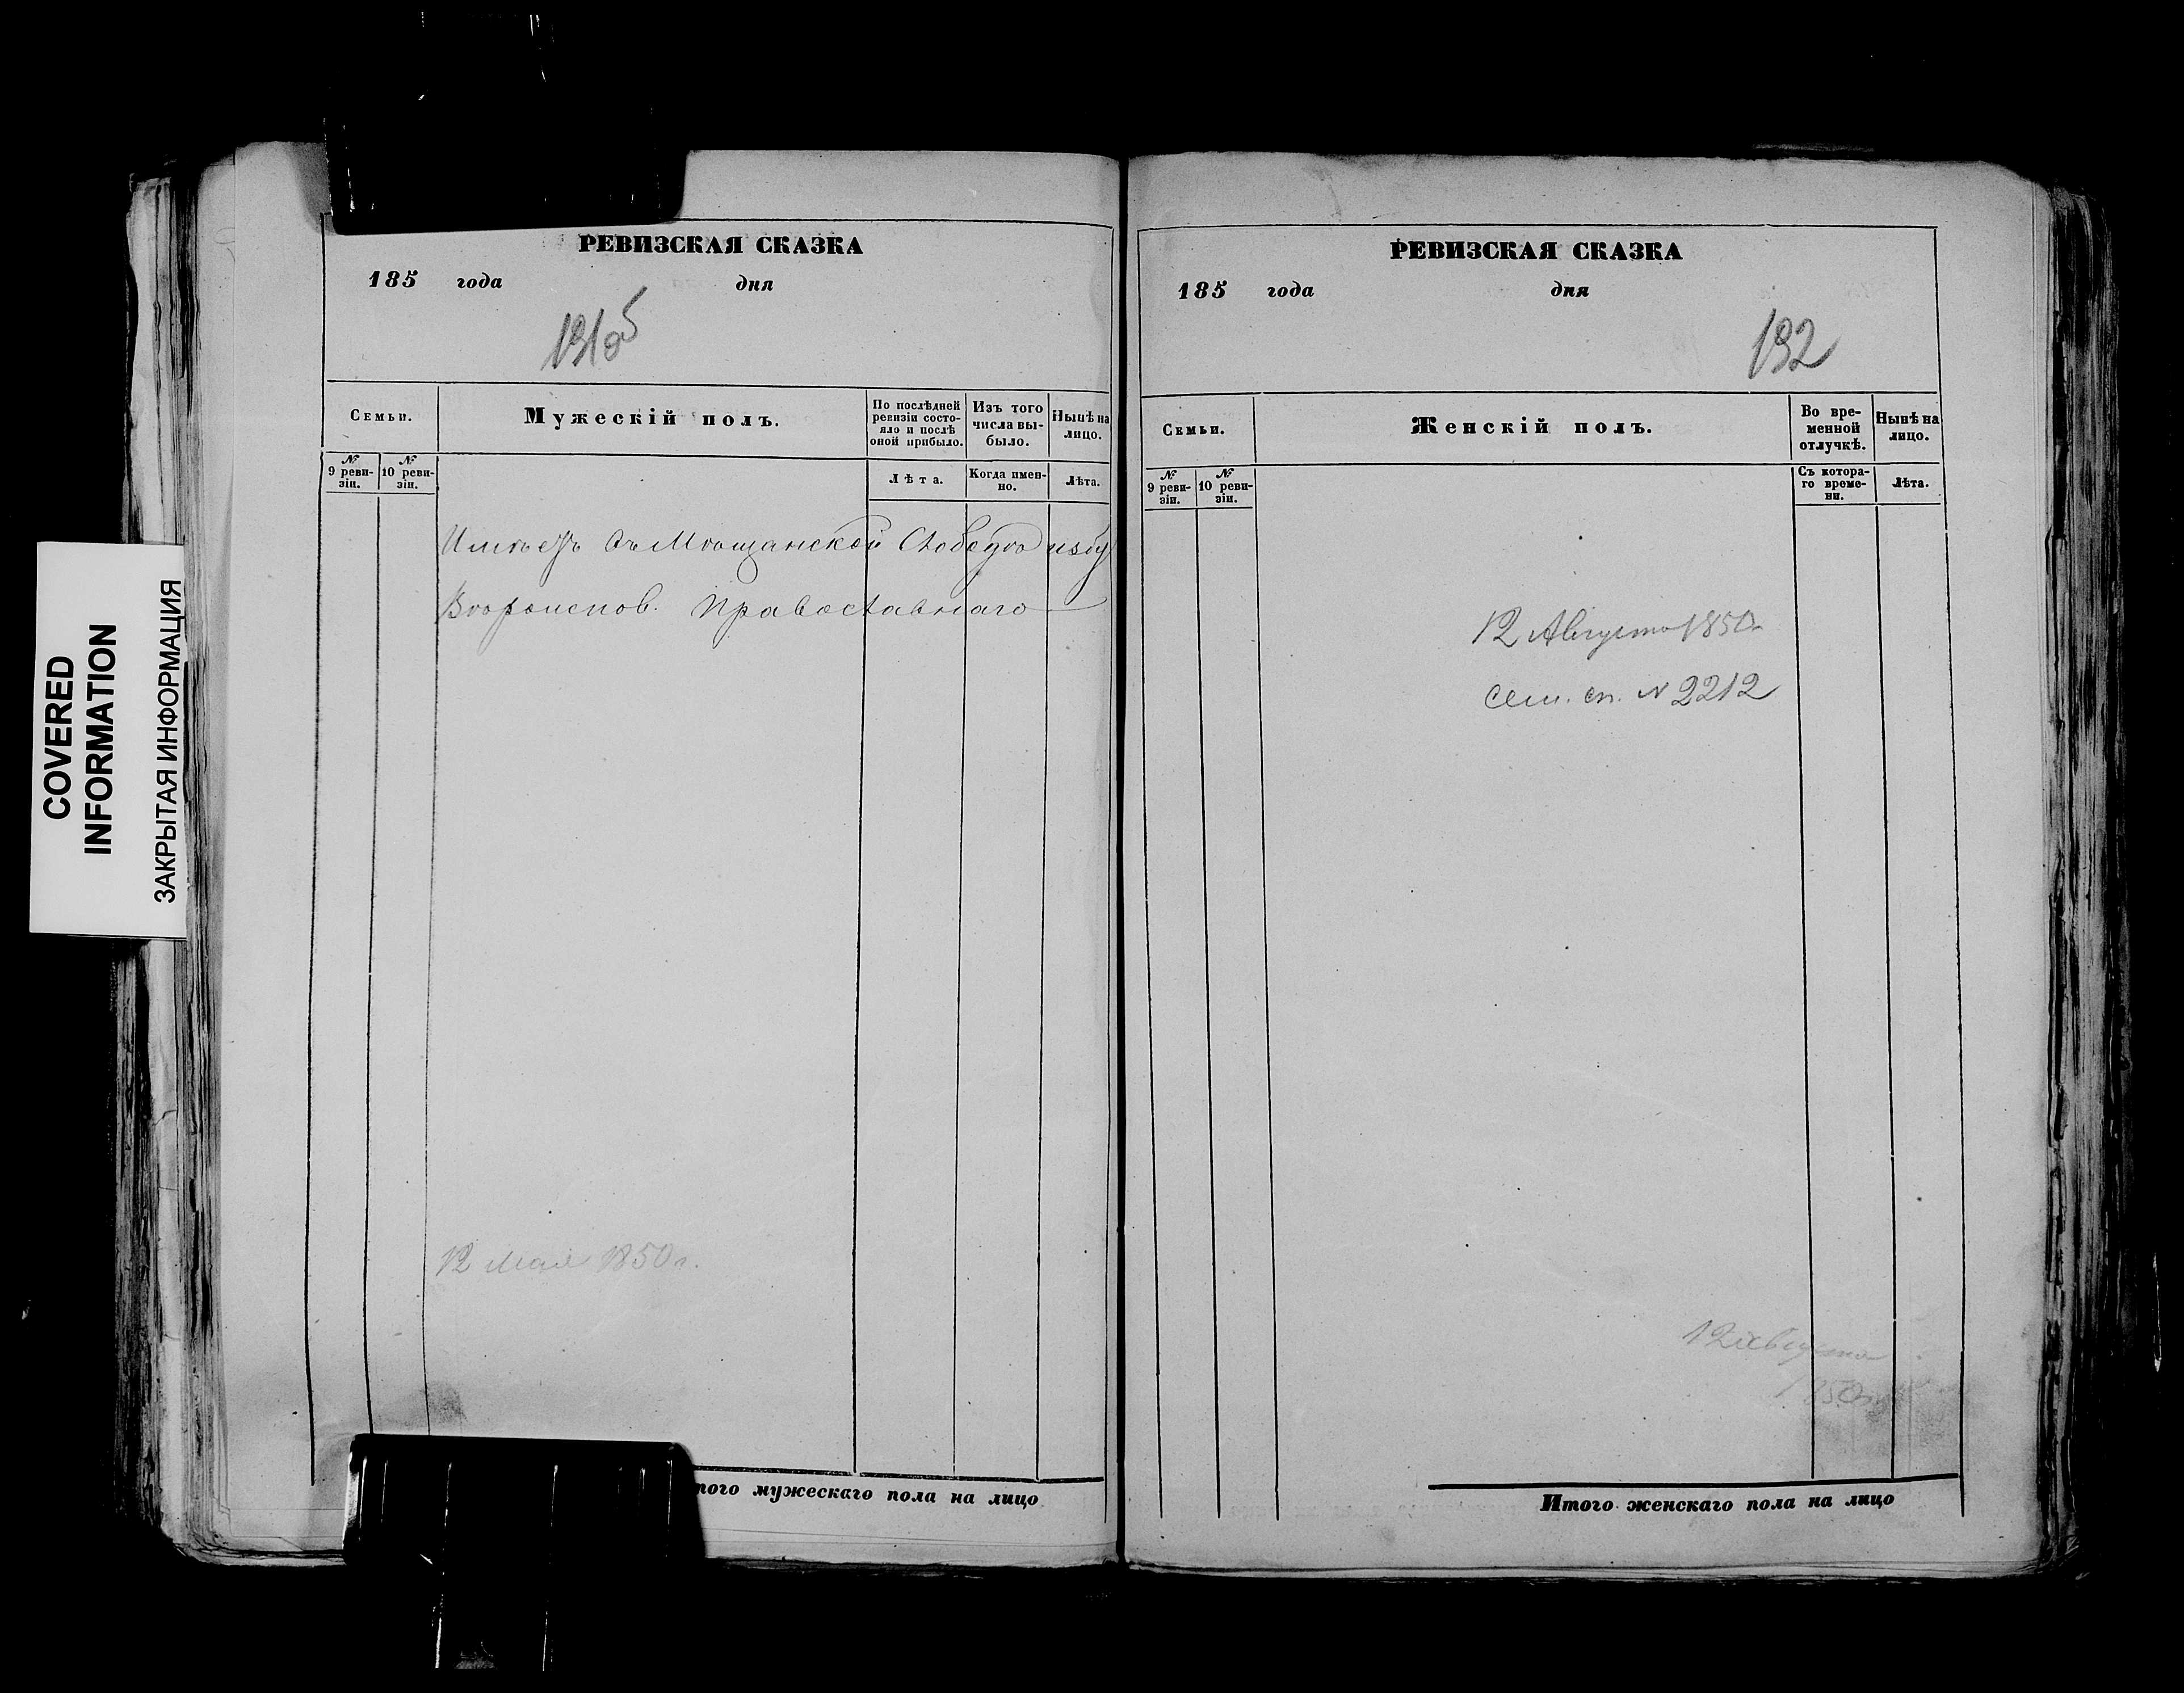 COVERED
INFORMATION
ЗАКРЫТАЯ ИНФОРМАЦИЯ
РЕВИЗСКАЯ СКАЗКА
185 года дня
191об
Семьи.
Мужескій полъ.
По послѣдней ревизіи состояло и послѣ оной прибыло.
Изъ того числа выбыло.
Нынѣ на лицо.
№ 9 ревизіи.
№ 10 ревизіи.
Лѣта.
Когда именно.
Лѣта.
Имѣетъ въ Мѣщанской Слободѣ избу
Вѣроисповѣ. Православнаго
12 мая 1850 г.
того мужескаго пола на лицо
РЕВИЗСКАЯ СКАЗКА
185 года дня
192
Семьи.
Женскій полъ.
Во временной отлучкѣ.
Нынѣ на лицо.
№ 9 ревизіи.
№ 10 ревизіи.
Съ котораго времени.
Лѣта.
12 Августа 1850 г.
Сем. сп. № 2212
12 августа
1850 г.
Итого женскаго пола на лицо